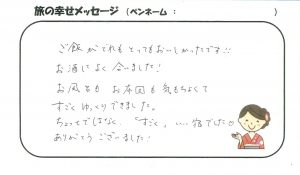 旅の幸せメッセージ （ペンネーム ： ）
ご飯がどれもとってもおいしかったです!!
お酒によく合いました!
お風呂も お布団も 気もちよくて
すごくゆっくりできました。
ちょっとではなく、「すごく」いい宿でした
ありがとうございました!